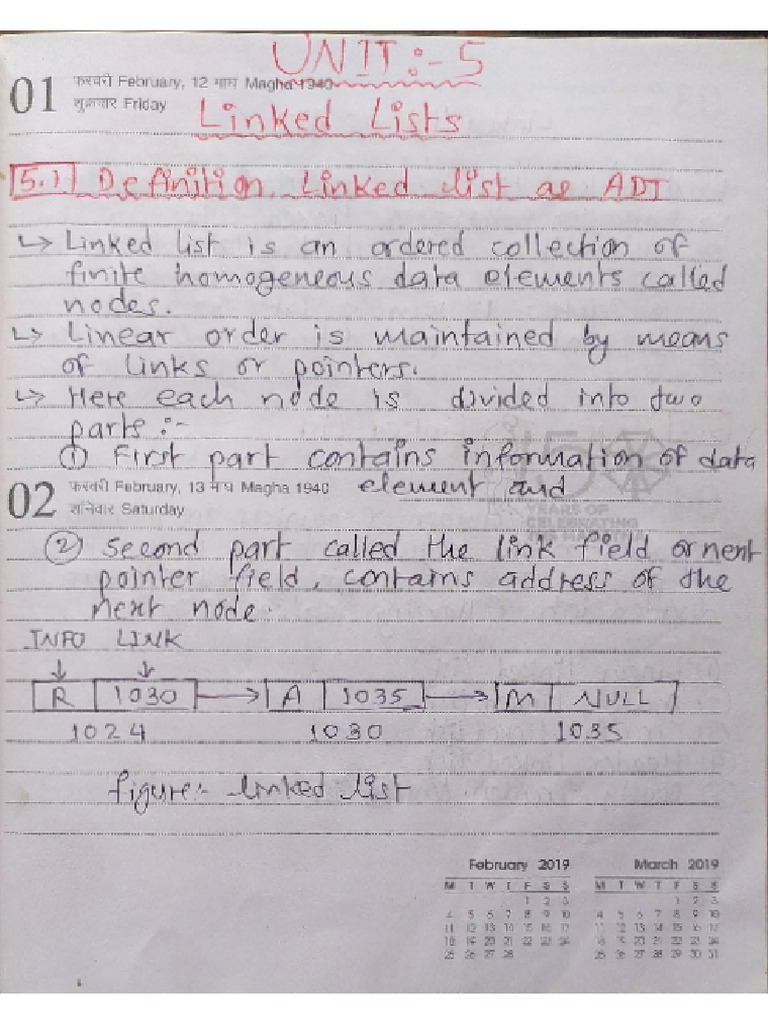 UNIT:- 5
01 फरवरी February, 12 माघ Magha 1940
शुक्रवार Friday
Linked Lists
5.1 Definition, Linked list as ADT
↳ Linked list is an ordered collection of
finite homogeneous data elements called
nodes.
↳ Linear order is maintained by means
of links or pointers.
↳ Here each node is divided into two
parts :-
① First part contains information of data
02 फरवरी February, 13 माघ Magha 1940 element and
शनिवार Saturday
YEARS OF
CELEBRATING
THE MAHATMA
② Second part called the link field or next
pointer field, contains address of the
next node.
INFO LINK
R 1030 → A 1035 → M NULL
1024 1030 1035
figure:- linked list
February 2019 March 2019
M T W T F S S M T W T F S S
1 2 3 1 2 3
4 5 6 7 8 9 10 4 5 6 7 8 9 10
11 12 13 14 15 16 17 11 12 13 14 15 16 17
18 19 20 21 22 23 24 18 19 20 21 22 23 24
25 26 27 28 25 26 27 28 29 30 31